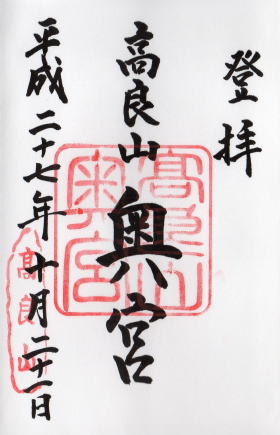 登拝
高良山奥宮
平成二十七年十月二十一日
高良山
奥宮
高良山